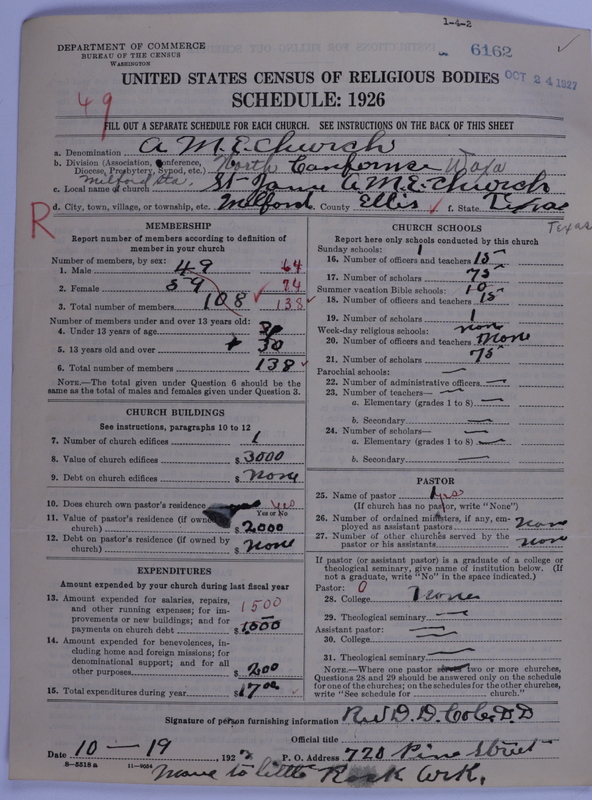 1-4-2
DEPARTMENT OF COMMERCE
BUREAU OF THE CENSUS
WASHINGTON
6162
UNITED STATES CENSUS OF RELIGIOUS BODIES OCT 24 1927
49
SCHEDULE: 1926
FILL OUT A SEPARATE SCHEDULE FOR EACH CHURCH. SEE INSTRUCTIONS ON THE BACK OF THIS SHEET
a. Denomination A.M.E. Church
b. Division (Association, Conference, Diocese, Presbytery, Synod, etc.) North
Milford Sta.
c. Local name of church St. A.M.E. Church
d. City, town, village, or township, etc. Milford County Ellis f. State Texas
R
Texas
MEMBERSHIP
Report number of members according to definition of member in your church
Number of members, by sex:
1. Male 49 64
2. Female 59 74
3. Total number of members 108 138
Number of members under and over 13 years old:
4. Under 13 years of age
5. 13 years old and over 30
6. Total number of members 138
NOTE.—The total given under Question 6 should be the same as the total of males and females given under Question 3.
CHURCH BUILDINGS
See instructions, paragraphs 10 to 12
7. Number of church edifices 1
8. Value of church edifices $3000
9. Debt on church edifices $ none
10. Does church own pastor's residence yes
Yes or No
11. Value of pastor's residence (if owned by church) $2000
12. Debt on pastor's residence (if owned by church) $ none
EXPENDITURES
Amount expended by your church during last fiscal year
13. Amount expended for salaries, repairs, and other running expenses; for improvements or new buildings; and for payments on church debt 1500 $1500
14. Amount expended for benevolences, including home and foreign missions; for denominational support; and for all other purposes $200
15. Total expenditures during year $1700
CHURCH SCHOOLS
Report here only schools conducted by this church
Sunday schools: 1
16. Number of officers and teachers 15
17. Number of scholars 75
Summer vacation Bible schools: 10
18. Number of officers and teachers 15
19. Number of scholars 1
Week-day religious schools: none
20. Number of officers and teachers none
21. Number of scholars 75
Parochial schools:
22. Number of administrative officers
23. Number of teachers—
a. Elementary (grades 1 to 8)
b. Secondary
24. Number of scholars—
a. Elementary (grades 1 to 8)
b. Secondary
PASTOR
25. Name of pastor yes
(If church has no pastor, write "None")
26. Number of ordained ministers, if any, employed as assistant pastors none
27. Number of other churches served by the pastor or his assistants none
If pastor (or assistant pastor) is a graduate of a college or theological seminary, give name of institution below. (If not a graduate, write "No" in the space indicated.)
Pastor: 0
28. College none
29. Theological seminary
Assistant pastor:
30. College
31. Theological seminary
NOTE.—Where one pastor serves two or more churches, Questions 28 and 29 should be answered only on the schedule for one of the churches; on the schedules for the other churches, write "See schedule for church."
Signature of person furnishing information Rev D. D. Cole, D.D
Official title
Date 10-19 1927 P. O. Address 720 Pine Street
8-5518 a 11-9054
move to little Rock Ark.